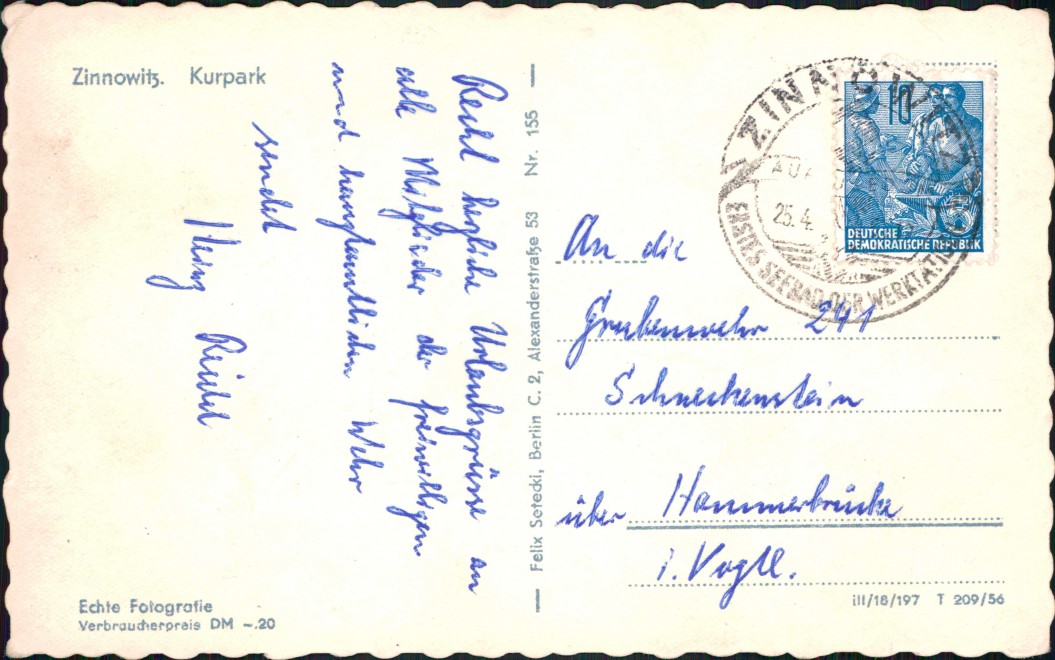 Zinnowitz. Kurpark
Recht herzliche Urlaubsgrüsse an
alle Mitglieder der freiwilligen
und hauptamtlichen Wehr
sendet
Heinz
Felix Setecki, Berlin C. 2, Alexanderstraße 53 Nr. 155
Echte Fotografie
Verbraucherpreis DM -.20
ZINNOWITZ
25.4.
ERSTES SEEBAD DER WERKTÄTIGEN
10
DEUTSCHE
DEMOKRATISCHE REPUBLIK
An die
Grubenwehr 241
Schneckenstein
über Hammerbrücke
i. Vogtl.
III/18/197 T 209/56